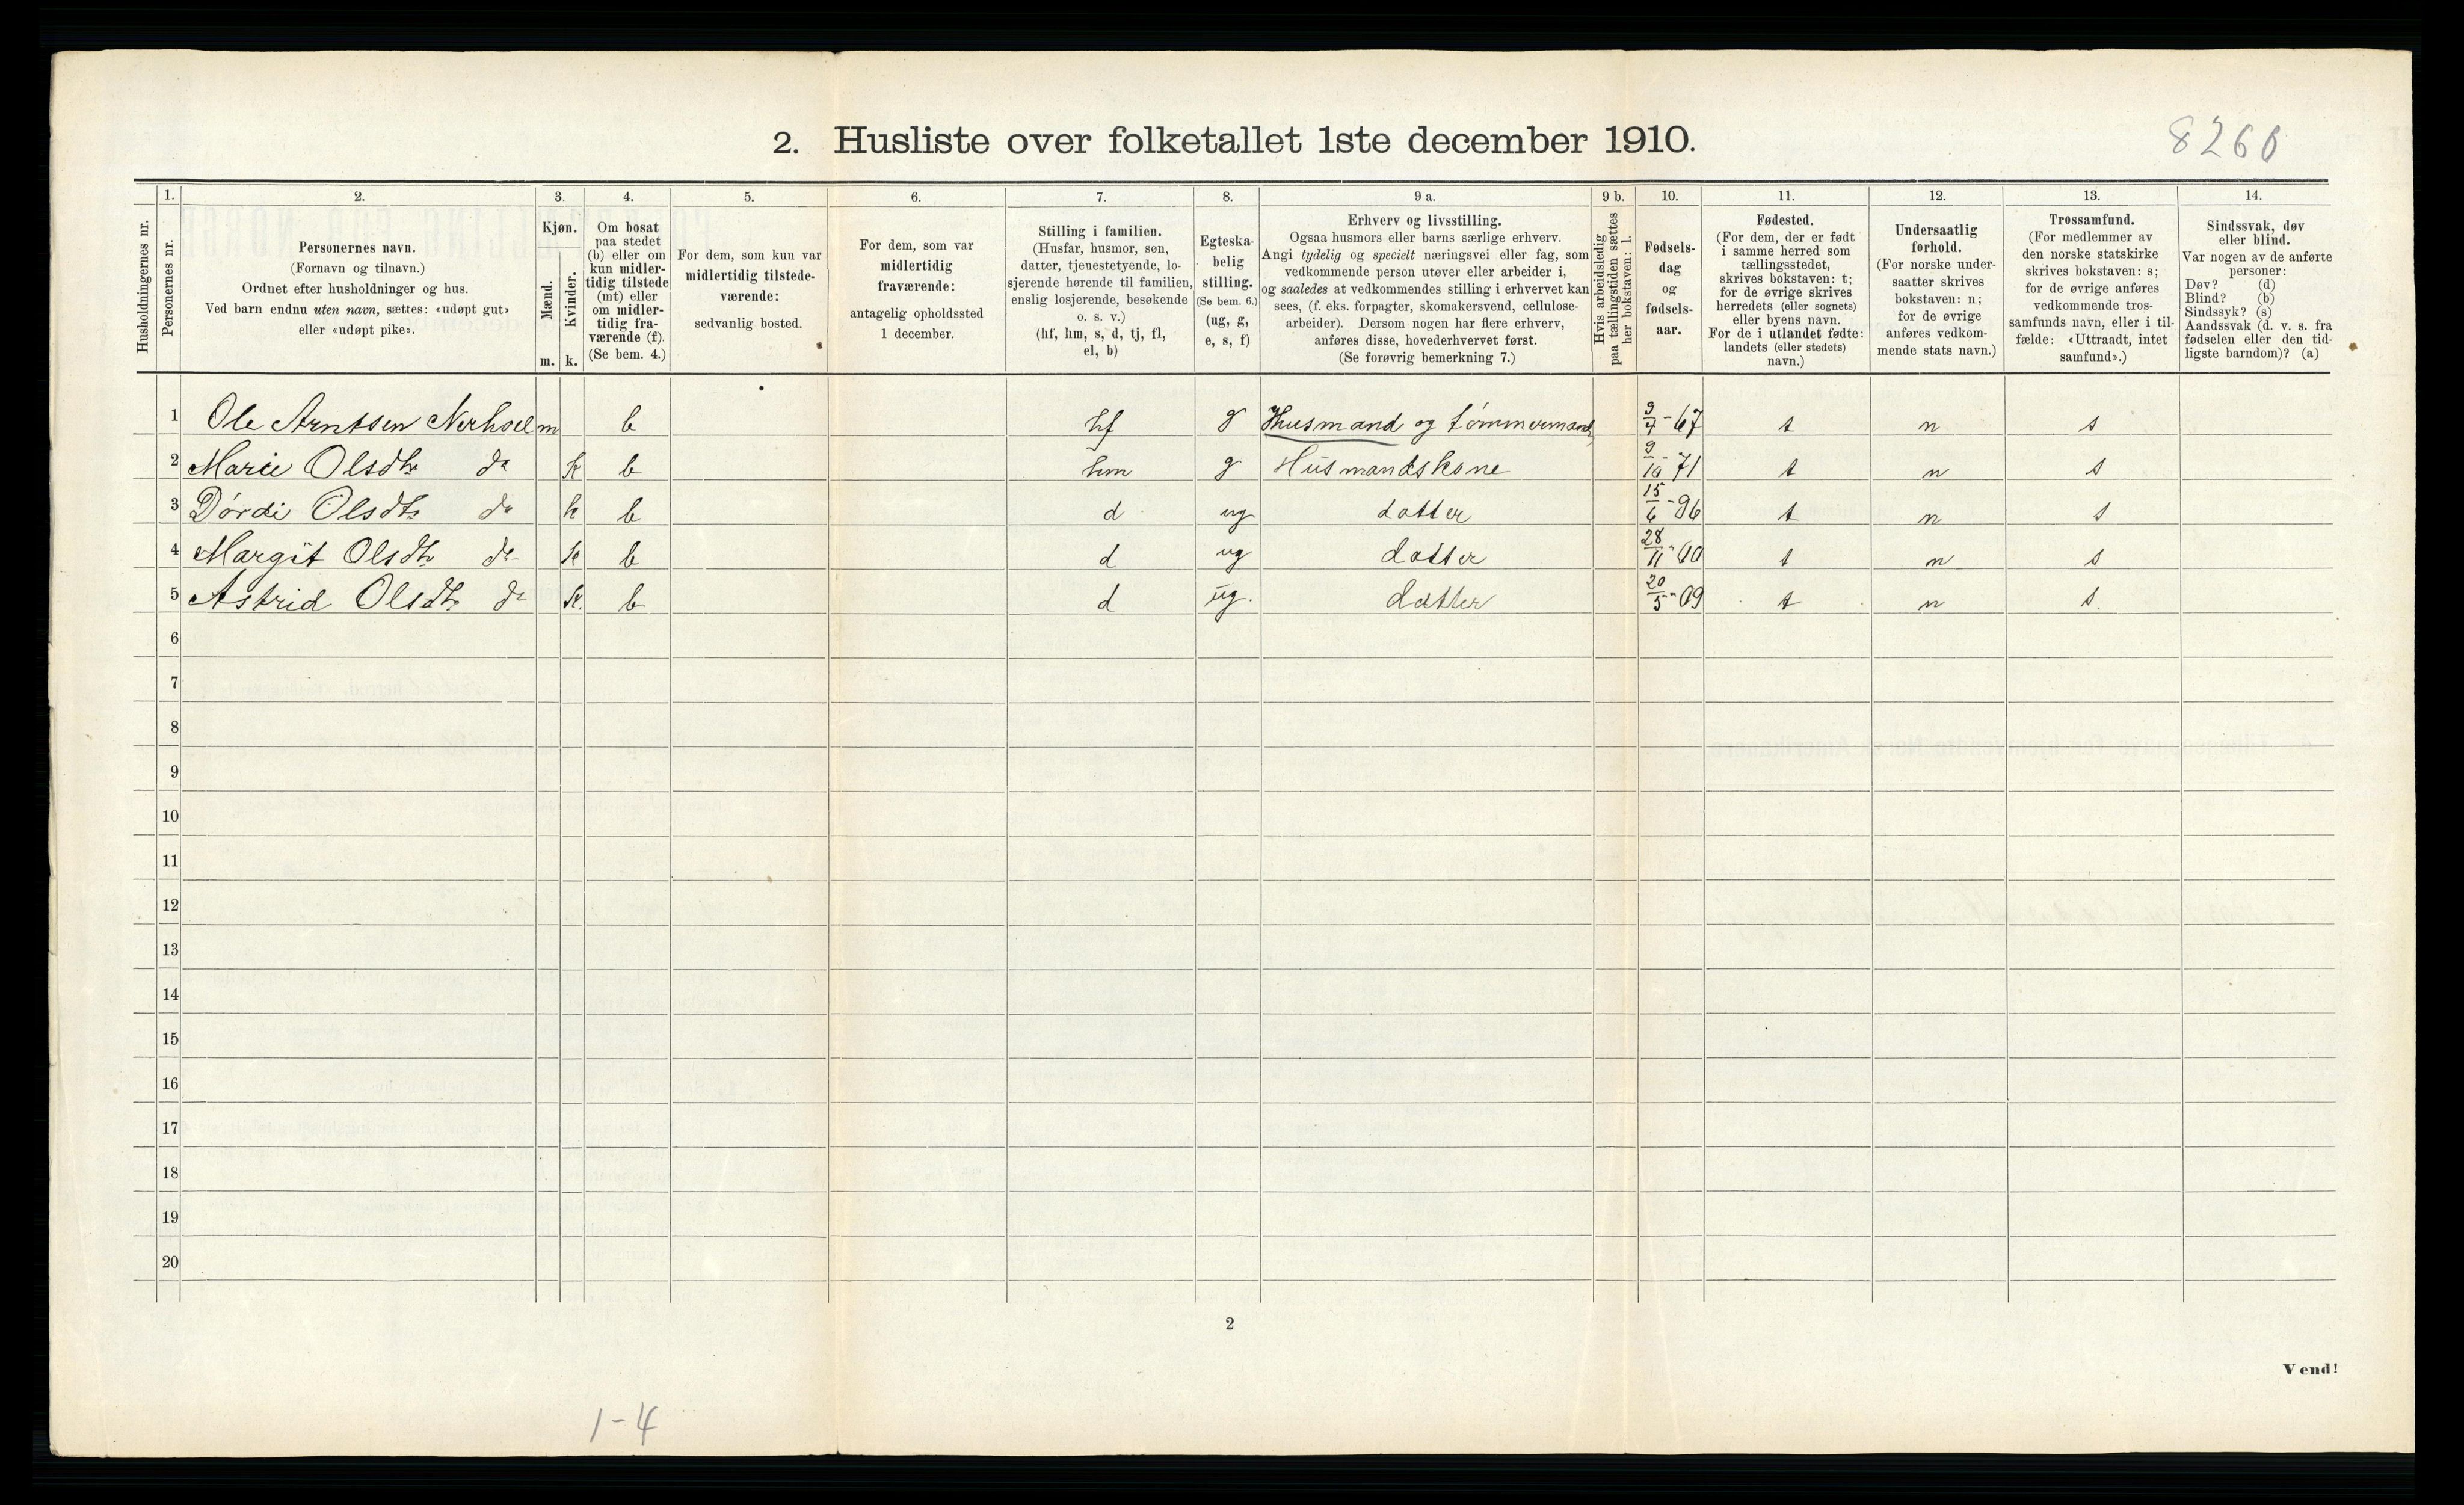 2. Husliste over folketallet 1ste december 1910.
8260
Husholdningernes nr.
1. Personernes nr.
2. Personernes navn.
(Fornavn og tilnavn.)
Ordnet efter husholdninger og hus.
Ved barn endnu uten navn, sættes: «udøpt gut»
eller «udøpt pike».
3. Kjøn.
Mænd. m.
Kvinder. k.
4. Om bosat
paa stedet
(b) eller om
kun midler-
tidig tilstede
(mt) eller
om midler-
tidig fra-
værende (f).
(Se bem. 4.)
5. For dem, som kun var
midlertidig tilstede-
værende:
sedvanlig bosted.
6. For dem, som var
midlertidig
fraværende:
antagelig opholdssted
1 december.
7. Stilling i familien.
(Husfar, husmor, søn,
datter, tjenestetyende, lo-
sjerende hørende til familien,
enslig losjerende, besøkende
o. s. v.)
(hf, hm, s, d, tj, fl,
el, b)
8. Egteska-
belig
stilling.
(Se bem. 6.)
(ug, g,
e, s, f)
9 a. Erhverv og livsstilling.
Ogsaa husmors eller barns særlige erhverv.
Angi tydelig og specielt næringsvei eller fag, som
vedkommende person utøver eller arbeider i,
og saaledes at vedkommendes stilling i erhvervet kan
sees, (f. eks. forpagter, skomakersvend, cellulose-
arbeider). Dersom nogen har flere erhverv,
anføres disse, hovederhvervet først.
(Se forøvrig bemerkning 7.)
9 b. Hvis arbeidsledig
paa tællingstiden sættes
her bokstaven: l.
10. Fødsels-
dag
og
fødsels-
aar.
11. Fødested.
(For dem, der er født
i samme herred som
tællingsstedet,
skrives bokstaven: t;
for de øvrige skrives
herredets (eller sognets)
eller byens navn.
For de i utlandet fødte:
landets (eller stedets)
navn.)
12. Undersaatlig
forhold.
(For norske under-
saatter skrives
bokstaven: n;
for de øvrige
anføres vedkom-
mende stats navn.)
13. Trossamfund.
(For medlemmer av
den norske statskirke
skrives bokstaven: s;
for de øvrige anføres
vedkommende tros-
samfunds navn, eller i til-
fælde: «Uttraadt, intet
samfund».)
14. Sindssvak, døv
eller blind.
Var nogen av de anførte
personer:
Døv? (d)
Blind? (b)
Sindssyk? (s)
Aandssvak (d. v. s. fra
fødselen eller den tid-
ligste barndom)? (a)
1 Ole Arntsen Nerhoel m b hf g Husmand og tømmermand 9/7-67 t n s
2 Marie Olsdtr do k b hm g Husmandskone 9/10-71 t n s
3 Dórdi Olsdtr do k b d ug datter 15/6-96 t n s
4 Margit Olsdtr do k b d ug datter 28/11-00 t n s
5 Astrid Olsdtr do k. b d ug. datter 20/5-09 t n s.
6
7
8
9
10
11
12
13
14
15
16
17
18
19
20
2
Vend!
1-4